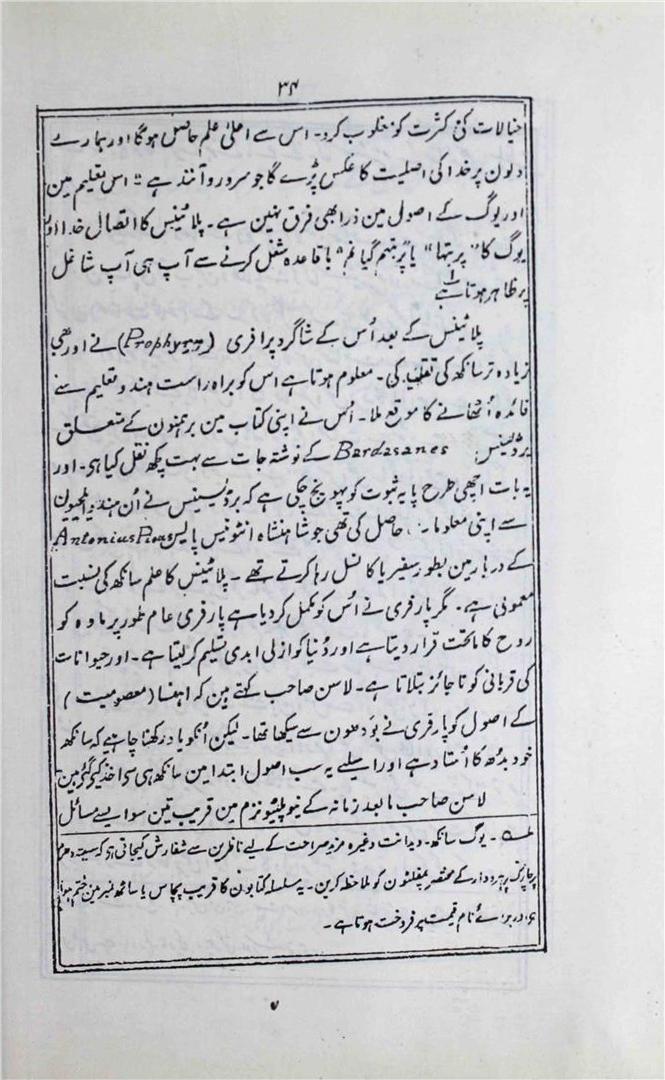 ۳۴
خیالات کی کثرت کو مغلوب کرد۔ اس سے اعلیٰ علم حاصل ہوگا اور ہمارے
دلون پر خدا کی اصلیت کا عکس پڑے گا جو سرور و آنند ہے" اس تعلیم مین
اور یوگ کے اصول مین ذرا بھی فرق نہین ہے۔ پلاٹینس کا اتصال خدا اور
یوگ کا "پرتبھا" یا "پرتبھم گیانم" باقاعدہ شغل کرنے سے آپ ہی آپ شاغل
پر ظاہر ہوتا ہے
پلاٹینس کے بعد اُس کے شاگرد پرافری (Prophyry) نے اور بھی
زیادہ تر سانکھ کی تقلید کی۔ معلوم ہوتا ہے اس کو براہ راست ہندو تعلیم سے
فائدہ اُٹھانے کا موقع ملا۔ اُس نے اپنی کتاب مین برہمنون کے متعلق
برڈسینس Bardasanes کے نوشتہ جات سے بہت کچھ نقل کیا ہی۔ اور
یہ بات اچھی طرح پایہ ثبوت کو پہونچ چکی ہے کہ برڈیسینس نے اُن ہندو ایلچیون
سے اپنی معلومات حاصل کی تھی جو شاہنشاہ انٹونیس پایس Antonius Pious
کے دربار مین بطور سفیر یا کانسل رہا کرتے تھے۔ پلاٹینس کا علم سانکھ کی نسبت
معمولی ہے۔ مگر پارفری نے اُس کو مکمل کردیا ہے پارفری عام طور پر مادہ کو
روح کا ماتحت قرار دیتا ہے اور دُنیا کو ازلی ابدی تسلیم کرلیتا ہے۔ اور حیوانات
کی قربانی کو ناجائز بتلاتا ہے۔ لاسن صاحب کہتے ہین کہ اہنسا (معصومیت)
کے اصول کو پارفری نے بودھون سے سیکھا تھا۔ لیکن اُنکو یاد رکھنا چاہیے کہ سانکھ
خود بُدھ کا اُستاد ہے اور اسلیے یہ سب اصول ابتدا مین سانکھ ہی سے اخذ کیے گئے ہین
لاسن صاحب ما بعد زمانہ کے نیو پلیٹونزم مین قریب تین سو ایسے مسائل
لہ۔ یوگ سانکھ۔ ویدانت وغیرہ مزید صراحت کے لیے ناظرین سے سفارش کیجاتی ہو کہ سیتہ دھرم
پرچارک ہردوار کے مختصر پمفلٹون کو ملاحظہ کرین۔ یہ سلسلہ کتابون کا قریب پچاس یا ساٹھ نمبر مین ختم ہوا
اور برائے نام قیمت پر فروخت ہوتا ہے۔
۷